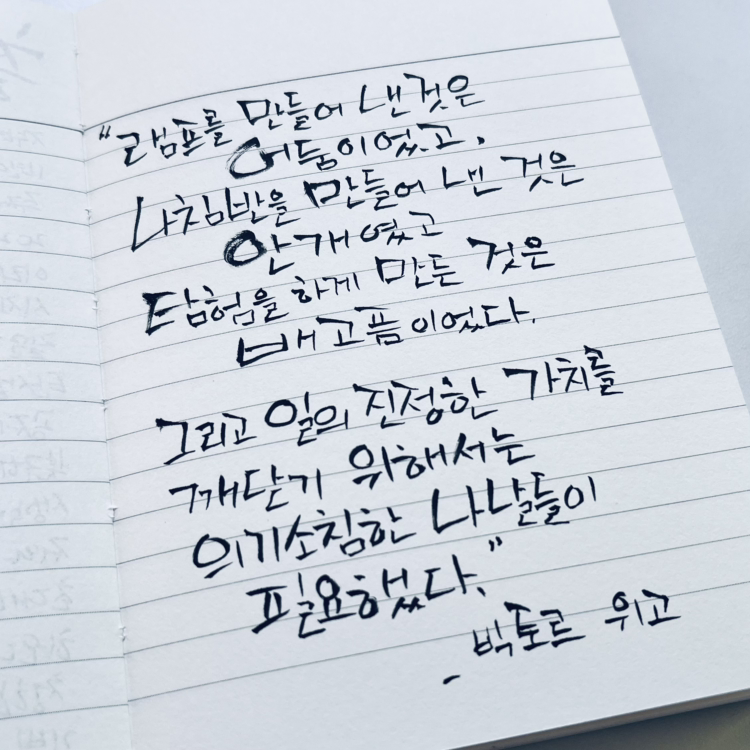 "램프를 만들어 낸것은
어둠이었고,
나침반을 만들어 낸 것은
안개였고
탐험을 하게 만든 것은
배고픔이었다.
그리고 일의 진정한 가치를
깨닫기 위해서는
의기소침한 나날들이
필요했다."
- 빅토르 위고